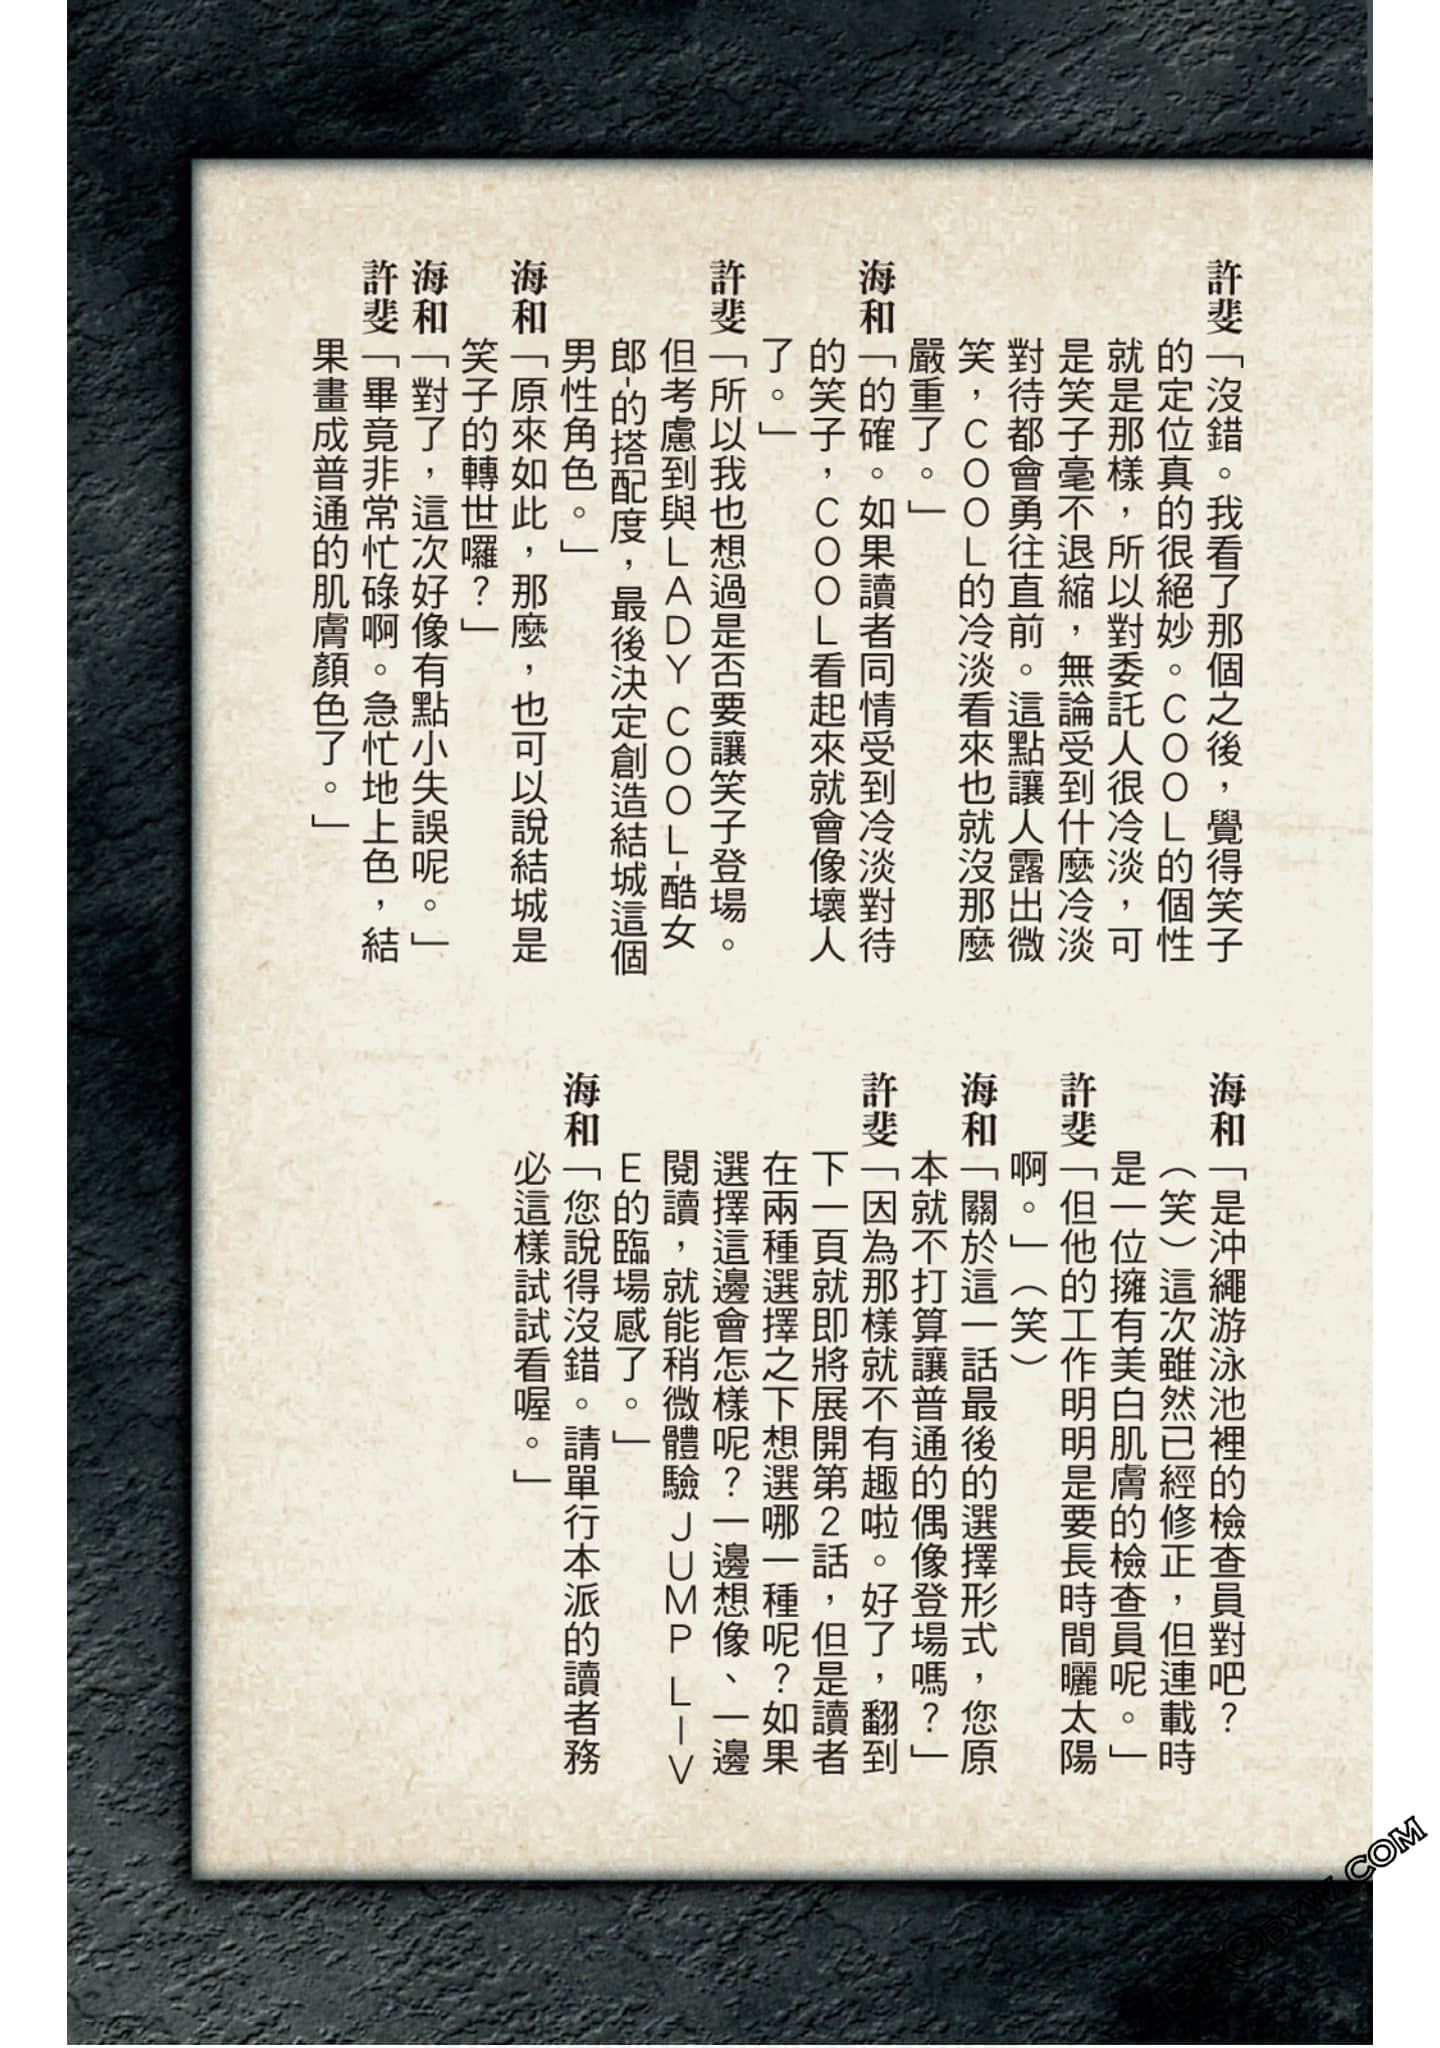 許斐「沒錯。我看了那個之後，覺得笑子
的定位真的很絕妙。ＣＯＯＬ的個性
就是那樣，所以對委託人很冷淡，可
是笑子毫不退縮，無論受到什麼冷淡
對待都會勇往直前。這點讓人露出微
笑，ＣＯＯＬ的冷淡看來也就沒那麼
嚴重了。」
海和「的確。如果讀者同情受到冷淡對待
的笑子，ＣＯＯＬ看起來就會像壞人
了。」
許斐「所以我也想過是否要讓笑子登場。
但考慮到與ＬＡＤＹ ＣＯＯＬ-酷女
郎-的搭配度，最後決定創造結城這個
男性角色。」
海和「原來如此，那麼，也可以說結城是
笑子的轉世囉？」
海和「對了，這次好像有點小失誤呢。」
許斐「畢竟非常忙碌啊。急忙地上色，結
果畫成普通的肌膚顏色了。」
海和「是沖繩游泳池裡的檢查員對吧？
（笑）這次雖然已經修正，但連載時
是一位擁有美白肌膚的檢查員呢。」
許斐「但他的工作明明是要長時間曬太陽
啊。」（笑）
海和「關於這一話最後的選擇形式，您原
本就不打算讓普通的偶像登場嗎？」
許斐「因為那樣就不有趣啦。好了，翻到
下一頁就即將展開第２話，但是讀者
在兩種選擇之下想選哪一種呢？如果
選擇這邊會怎樣呢？一邊想像、一邊
閱讀，就能稍微體驗 ＪＵＭＰ ＬＩＶ
Ｅ的臨場感了。」
海和「您說得沒錯。請單行本派的讀者務
必這樣試試看喔。」